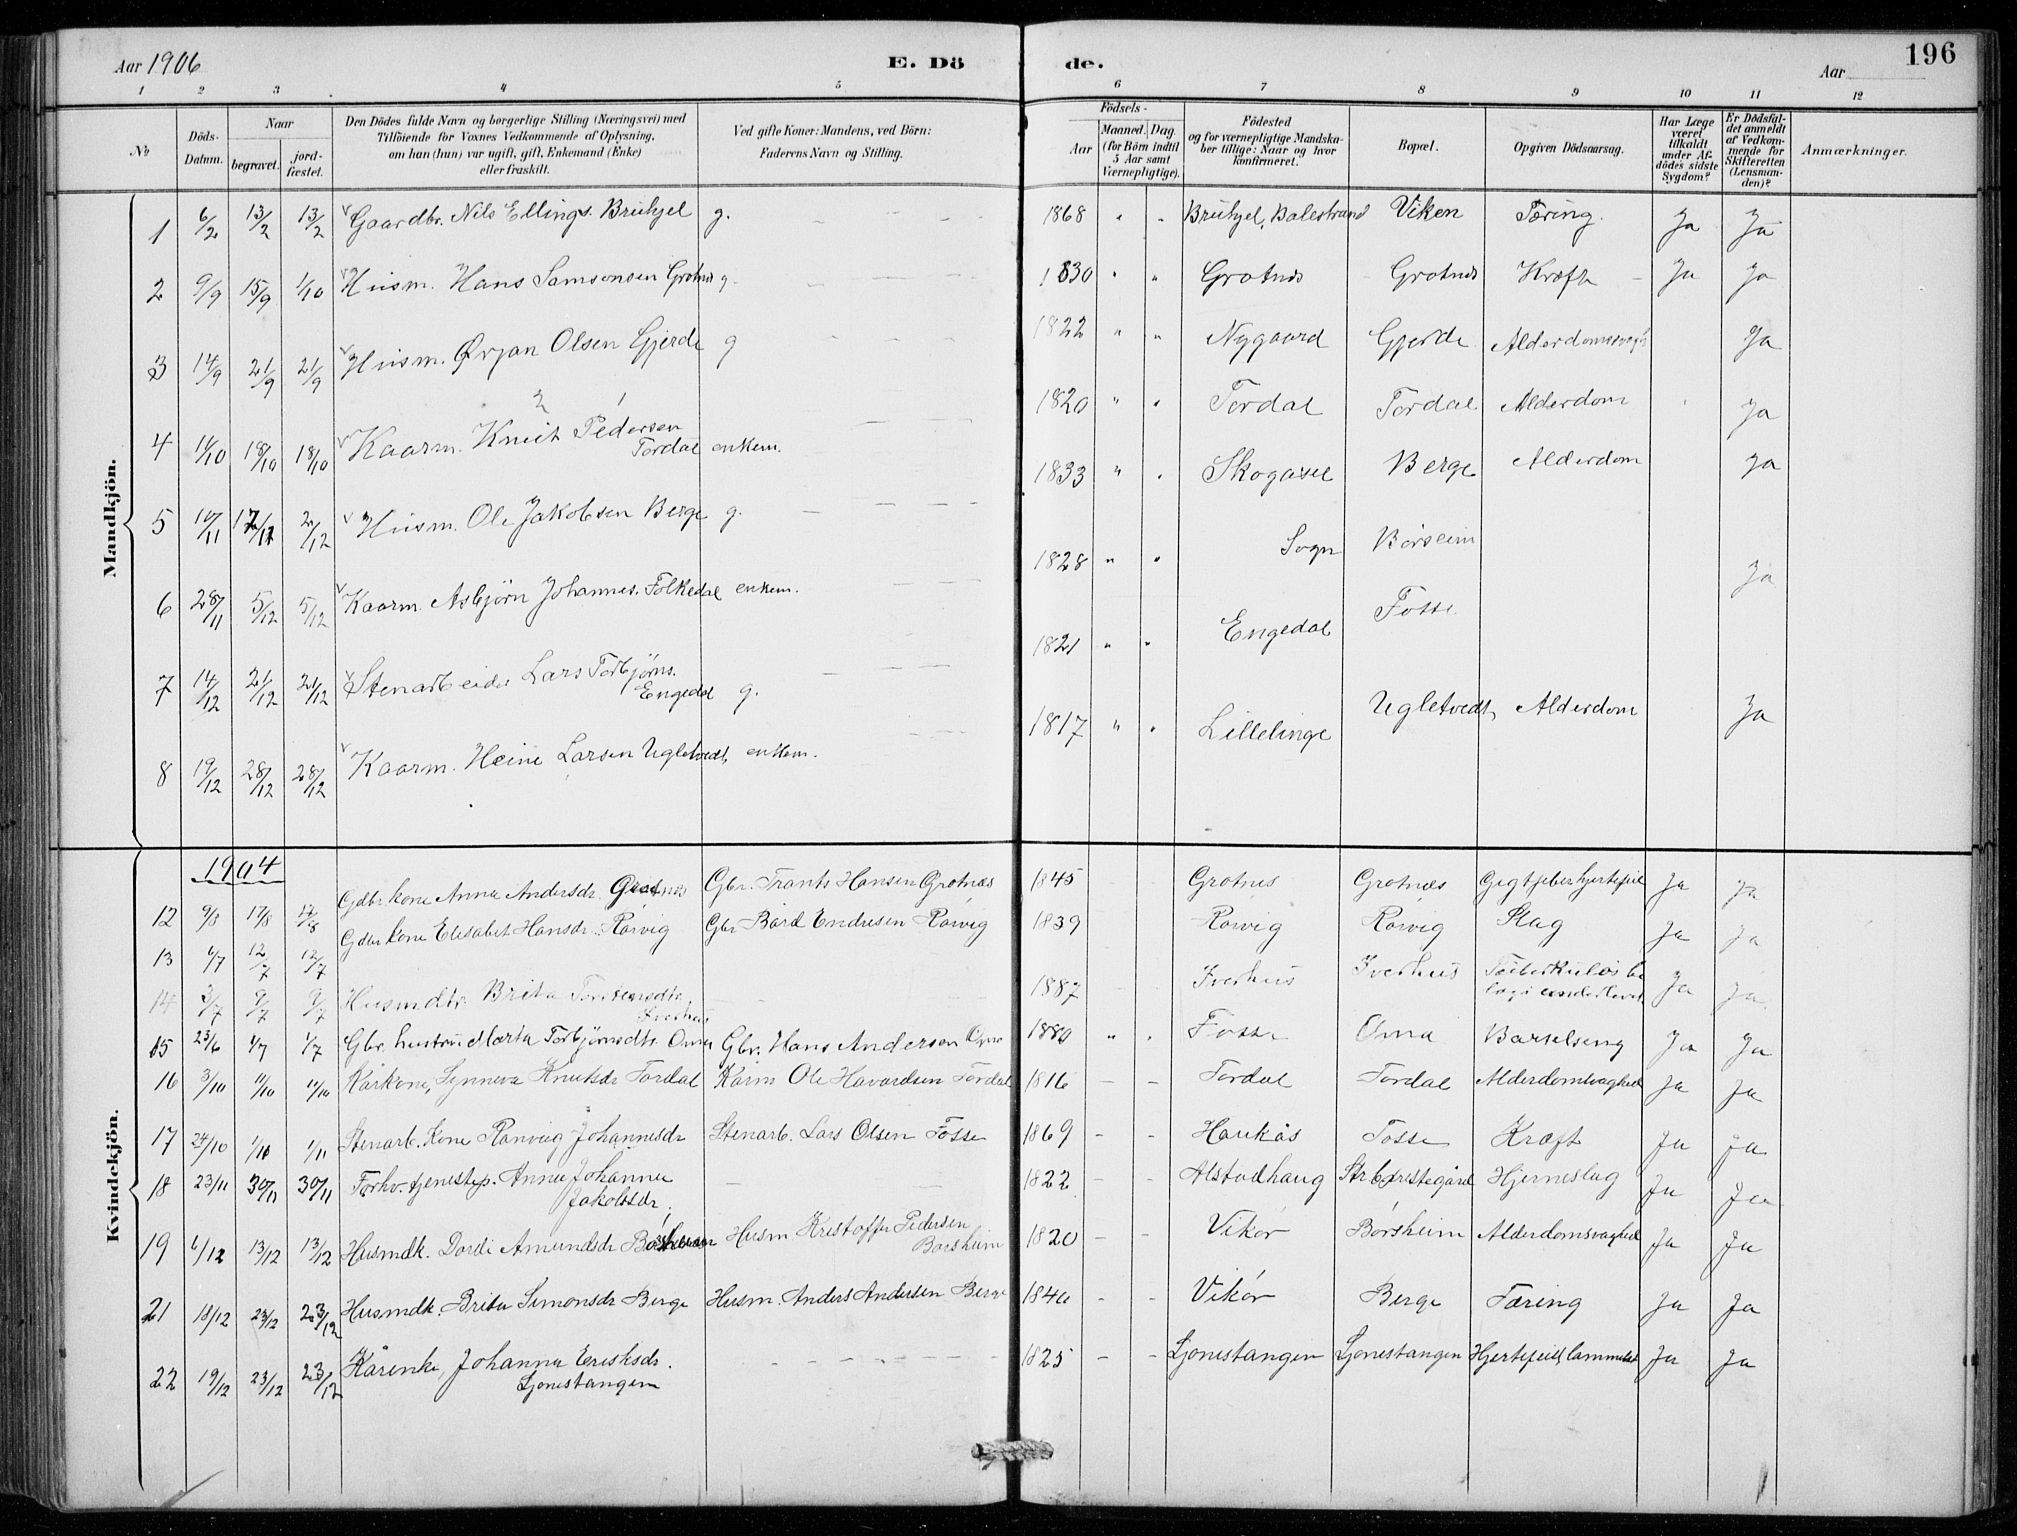 Aar 1906
E. Dö
de.
Aar
196
1 2 3 4 5 6 7 8 9 10 11 12
No
Döds-Datum.
Naar
begravet.
jord-fæstet.
Den Dödes fulde Navn og borgerlige Stilling (Næringsvei) med
Tilföiende for Voxnes Vedkommende af Oplysning,
om han (hun) var ugift, gift, Enkemand (Enke)
eller fraskilt.
Ved gifte Koner: Mandens, ved Börn:
Faderens Navn og Stilling.
Födsels-
Aar
Maaned. Dag.
(for Börn indtil
5 Aar samt
Værnepligtige).
Födested
og for værnepligtige Mandska-
ber tillige: Naar og hvor
konfirmeret.
Bopæl.
Opgiven Dödsaarsag.
Har Læge
været
tilkaldt
under Af-
dödes sidste
Sygdom?
Er Dödsfal-
det anmeldt
af Vedkom-
mende for
Skifteretten
(Lensman-
den)?
Anmærkninger.
Mandkjön.
1 6/2 13/2 13/2 Gaardbr. Nils Ellings. Bruhjel g. 1868 " " Bruhjel, Balestrand Viken Tæring. Ja Ja
2 9/9 15/9 1/10 Husm. Hans Samsonsen Grotnes g. 1830 " " Grotnes Grotnes Kræft Ja Ja
3 14/9 21/9 21/9 Husm. Ørjan Olsen Gjerde g 1822 " " Nygaard Gjerde Ja
4 11/10 18/10 18/10 Kaarm. Knut Pedersen
Tordal enkem. 1820 " " Tordal Tordal Alderdom Ja
5 10/11 17/11 2/12 Husm. Ole Jakobsen Berge g. 1833 " " Skogasel Berge Alderdom Ja
6 28/11 5/12 5/12 Kaarm. Asbjörn Johannes. Folkedal enkem. 1828 " " Sogn Börseim Ja
7 14/12 21/12 21/12 Stenarbeider Lars Torbjørns.
Engedal g. 1821 " " Engedal Fosse
8 19/12 28/12 28/12 Kaarm. Heine Larsen Ugletvedt, enkem. 1817 " " Lillelinge Ugletvedt, Alderdom Ja
Kvindekjön.
1904
12 9/8 17/8 17/8 Gdbr kone Anna Andersdr. Grotnes Gbr. Trants Hansen Grotnæs 1845 Grotnes Grotnæs Gigtfeber hjertefeil Ja Ja
13 6/7 12/7 12/7 Gdbr kone Elisabet Hansdr. Rørvig Gbr Bård Endresen Rørvig 1839 Rørvig Rørvig Slag Ja Ja
14 3/7 9/7 9/7 Husmdtr. Brita Torstensdtr.
Iverhus 1887 Iverhus Iverhus Ja Ja
15 23/6 1/7 1/7 Gbr. hustru Marta Torbjørnsdtr. Oma Gbr. Hans Andersen Oma 1880 " " Fosse Oma Barselseng Ja Ja
16 3/10 11/10 11/10 Kårkone, Synneva Knutsdr Tordal Kårm Ole Havardsen Tordal 1816 Tordal Tordal Alderdomsvaghed Ja Ja
17 24/10 1/11 1/11 Stenarb. kone Ranveig Johannesdr Stenarb. Lars Olsen Fosse 1869 Haukås Fosse Kræft Ja Ja
18 23/11 30/11 30/11 Forhv. tjenestep. Anna Johanna
Jakobsdr. 1822 Alstadhaug Str b. prestegård Hjerneslag Ja Ja
19 6/12 13/12 13/12 Husmdk. Dordi Amundsdr Børsheim Husm Kristoffer Pedersen
Børsheim 1820 Vikør Børsheim Alderdomsvaghed Ja Ja
21 18/12 23/12 23/12 Husmdk. Brita Simonsdr Berge Husm. Anders Andersen Berge 1840 Vikør Berge Tæring Ja Ja
22 19/12 23/12 23/12 Kårenke, Johanna Eriksdr.
Ljonestangen 1825 Ljonestangen Ljonestangen Ja Ja